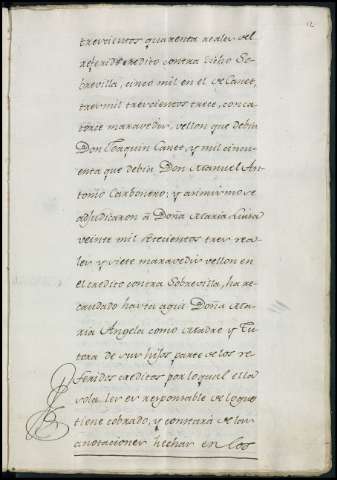 12
trescientos quarenta reales del
referido credito contra dicho So-
brevilla, cinco mil en el de Canet,
tres mil trescientos trece, con ca-
torce maravedis, vellon que debia
Don Joaquin Canet, y mil cinqu-
enta que debia Don Manuel An-
tonio Carbonero; y asimismo se
adjudicaron à Doña Maria Luisa
veinte mil setecientos tres rea-
les y siete maravedis vellon en
el credito contra Sobrevilla, ha re-
caudado hasta aqui Doña Ma-
ria Angela como Madre y Tu-
tora de sus hijos parte de los re-
feridos creditos por lo qual ella
sola les es responsable de lo que
tiene cobrado, y constará de las
anotaciones hechas en los